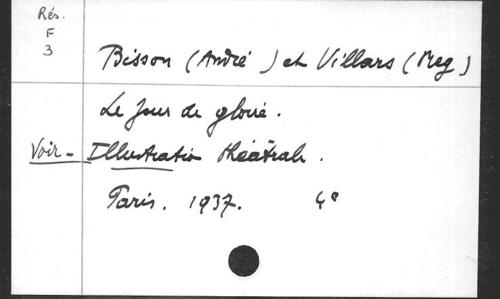 Rés.
F
3
Bisson (André) et Villars (Meg)
Le Jour de gloire.
Voir - Illustration théâtrale.
Paris. 1937. 4°